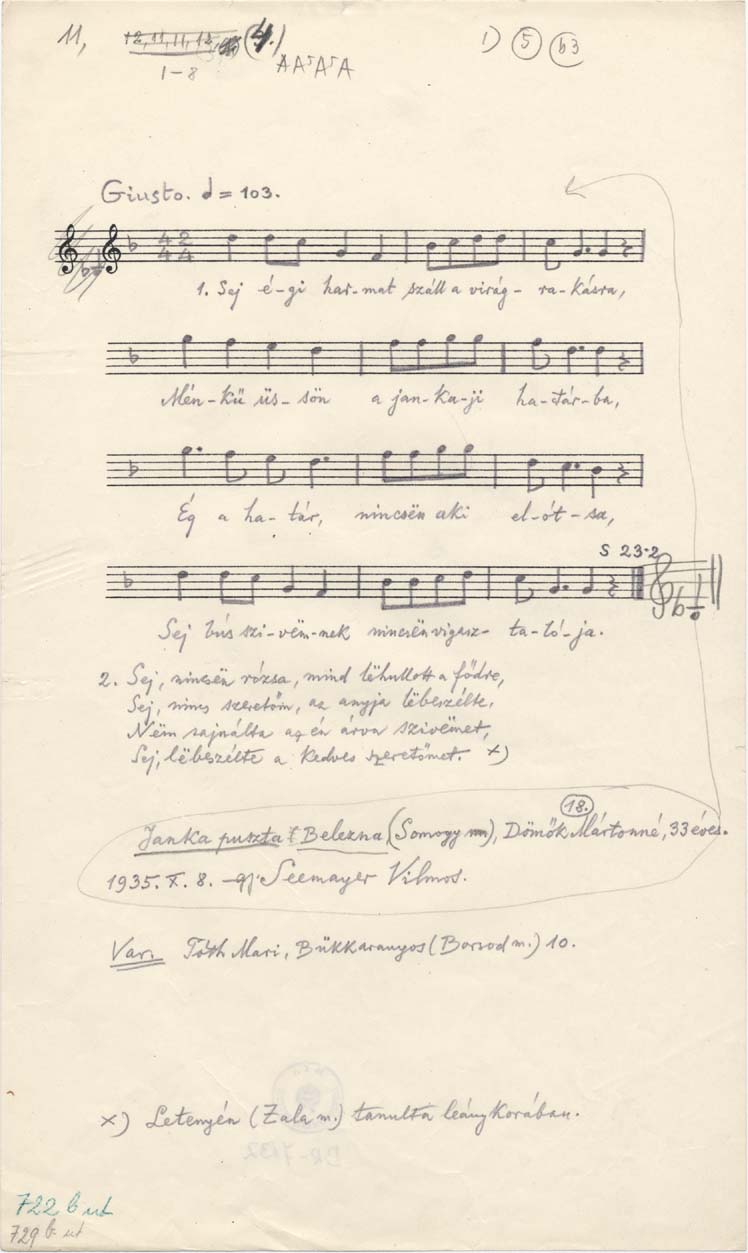 11, 12, 11, 11, 12, (4.) 1) 5 b3
1-8 A A⁵ A⁵ A
Giusto. = 103.
4 2
4 4
1. Sej é-gi har-mat száll a virág- ra-kásra,
Mén-kü üs-sön a jan-ka-ji ha-tár-ba,
Ég a ha-tár, nincsën aki el-ót-sa,
S 23·2
Sej bús szi-vëm-nek nincsën vigasz- ta-ló-ja.
2. Sej, nincsën rózsa, mind lëhullott a födre,
Sej, nincs szeretőm, az anyja lëbeszélte,
Nëm sajnálta az én árva szivëmet,
Sej, lëbeszélte a kedves szeretőmet. x)
18.
Janka puszta Belezna, (Somogy m), Dömők Mártonné, 33 éves.
1935. X. 8. Seemayer Vilmos.
Var. Tóth Mari, Bükkaranyos (Borsod m.) 10.
x) Letenyén (Zala m.) tanulta leánykorában.
722 b ut
729 b ut